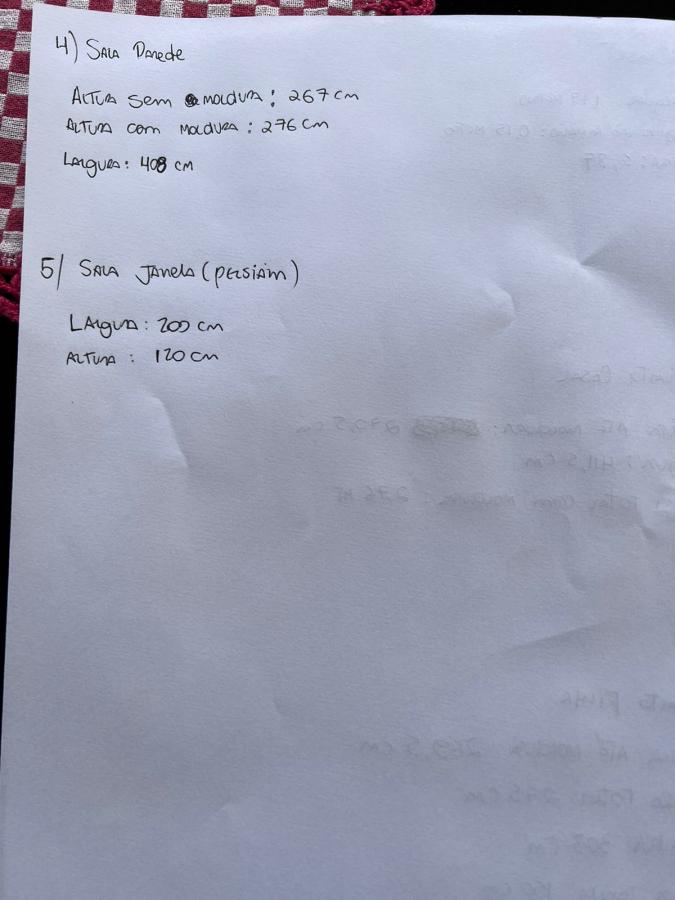 4) Sala Parede
Altura sem moldura: 267 cm
Altura com moldura: 276 cm
Largura: 408 cm
5) Sala Janela (persiana)
Largura: 200 cm
Altura: 120 cm